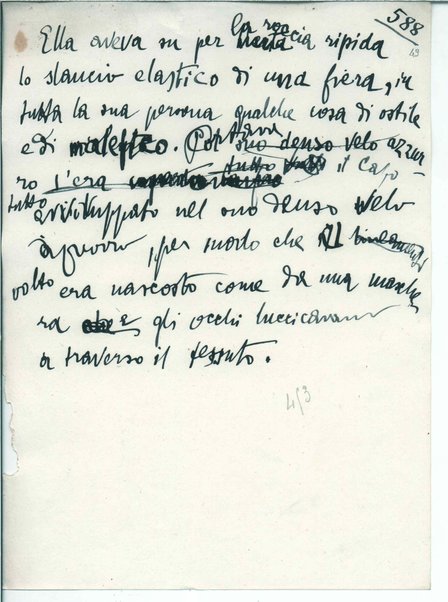 588
49
Ella aveva su per la roccia ripida
lo slancio elastico di una fiera, in
tutta la sua persona qualche cosa di ostile
e di malefico. Portava
suo denso velo azzur
ro s'era tutto il capo
tutto avviluppato nel suo denso velo
azzurro, per modo che il
volto era nascosto come da una masche
ra e gli occhi luccicavano
a traverso il tessuto.
453